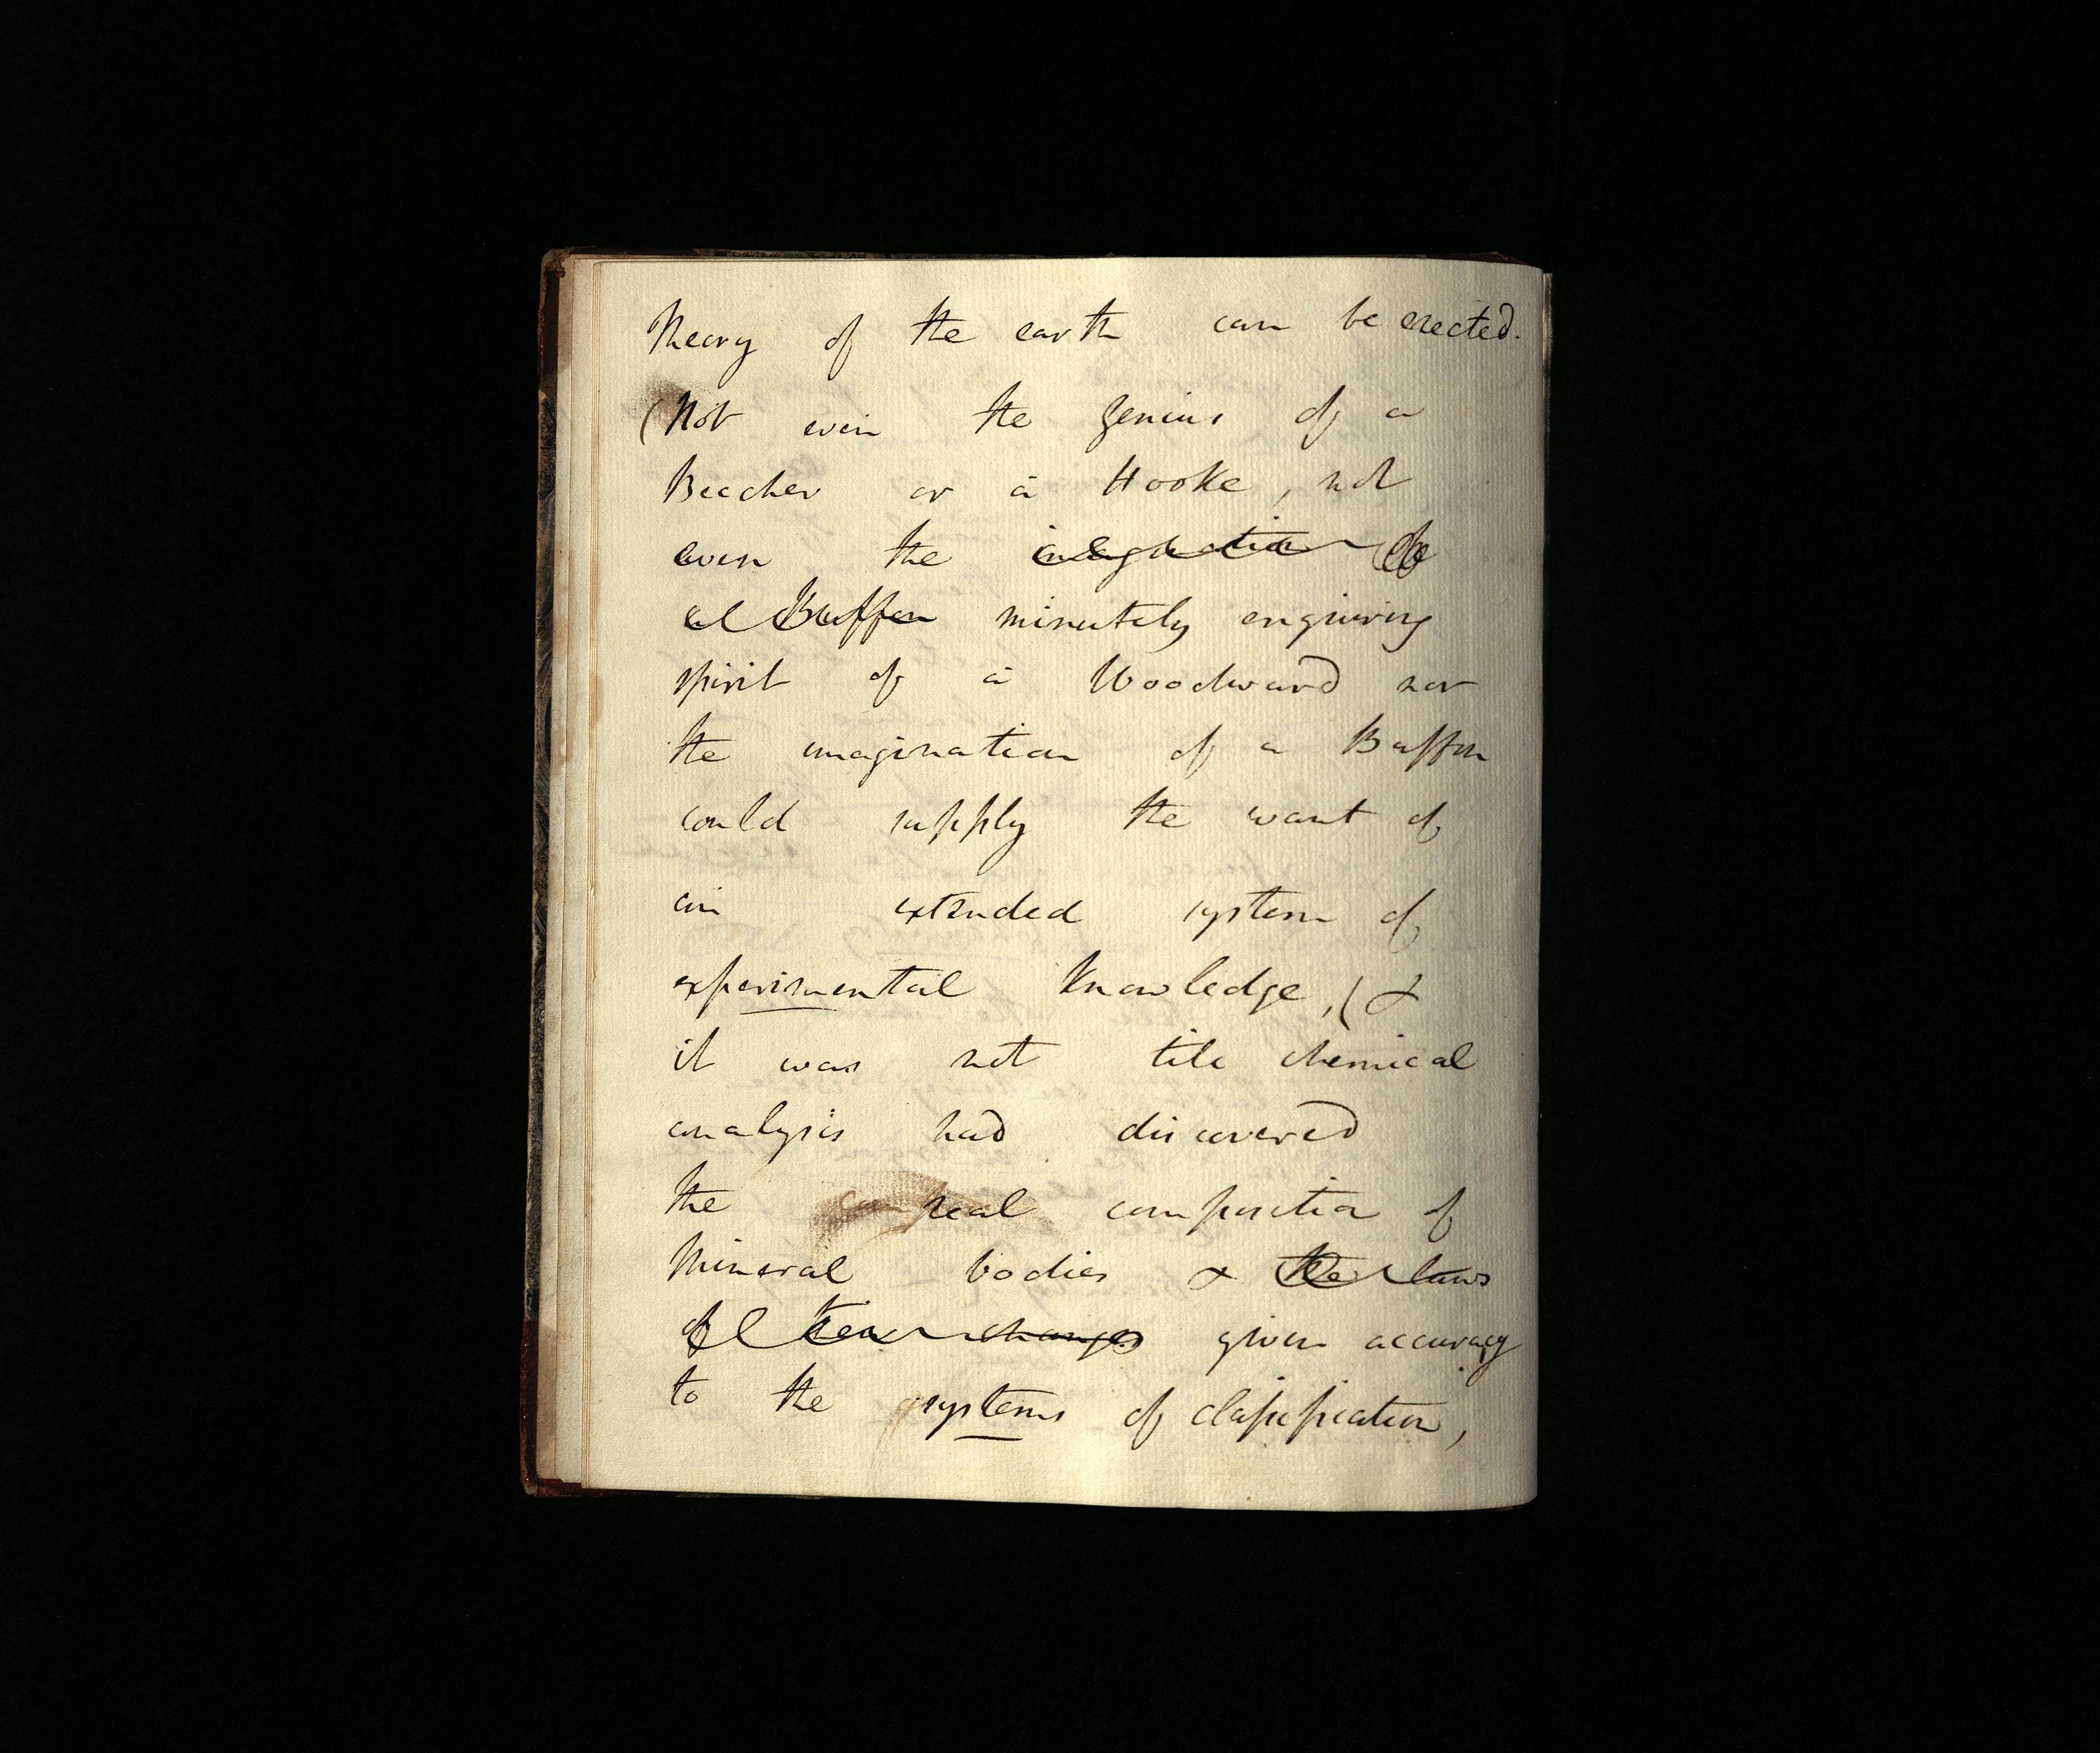 Theory of the earth can be erected.
(Not even the genius of a
Beecher or a Hooke, not
even the imagination of
a Buffon minutely enquiring
spirit of a Woodward nor
the imagination of a Buffon
could supply the want of
an extended system of
experimental knowledge, (&
it was not till chemical
analysis had discovered
the real composition of
Mineral bodies & the laws
of their changes given accuracy
to the systems of classification,